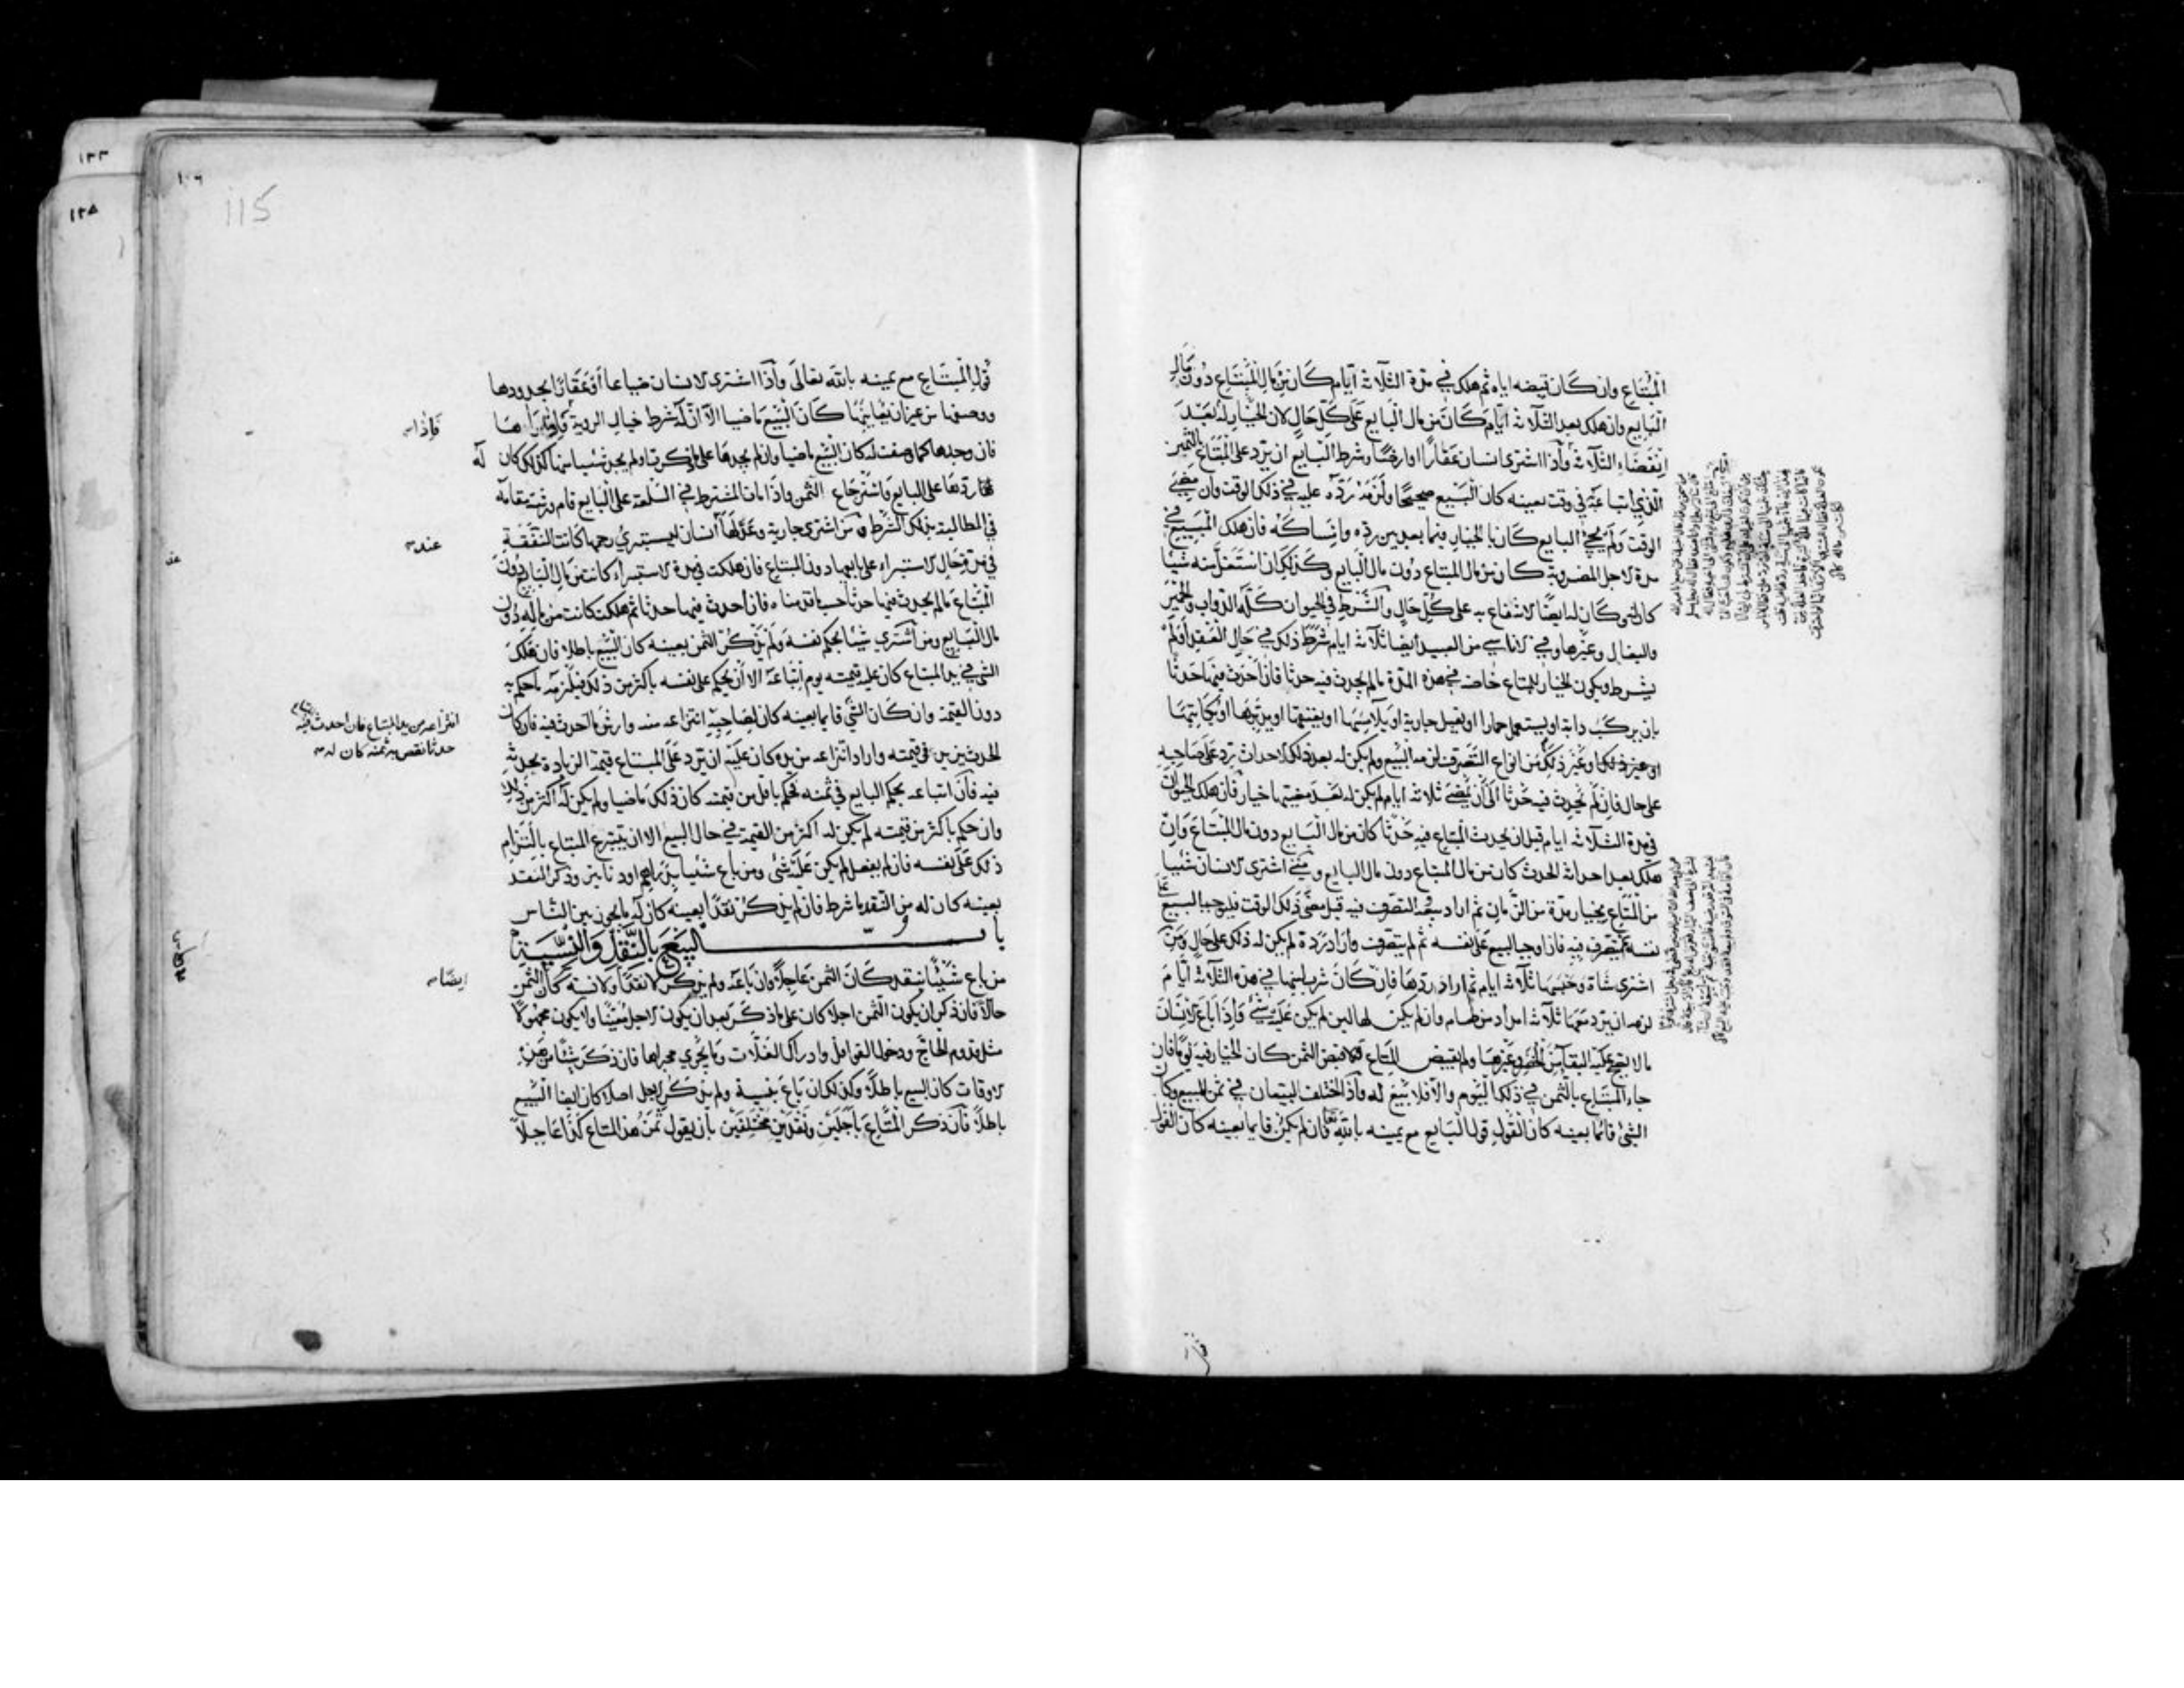 المبتاع وان كان قبضه اياه ثم هلك في مدة الثلاثة ايام كان من مال المبتاع دون مال
البايع وان هلك بعد الثلاثة ايام كان من مال البايع على كل حال لان الخيار له بعد
انقضاء الثلاثة واذا اشترى انسان عقارا او ارضا وشرط البايع ان يرد على المبتاع بالثمن
الذي ابتاعه في وقت بعينه كان البيع صحيحا ولزمه رده عليه في ذلك الوقت وان مضى
الوقت ولم يجئ البايع كان بالخيار فيما بعد بين رده وامساكه فان هلك المبيع في
مدة الاجل المضروبة كان من مال المبتاع دون مال البايع وكذلك ان استغل منه شيئا
كان له وكان له ايضا الانتفاع به على كل حال والشرط في الحيوان كله الدواب والحمير
والبغال وغيرها وفي الاناسي من العبيد ايضا ثلاثة ايام شرط ذلك في حال العقد او لم
يشرط ويكون الخيار للمبتاع خاصة في هذه المدة ما لم يحدث فيه حدثا فان احدث فيها حدثا
بان يركب دابة او يستعمل حمارا او يقبل جارية او يلامسها او يعتقها او يدبرها او يكاتبها
او غير ذلك من انواع التصرف لزمه البيع ولم يكن له بعد ذلك الاحداث رد على صاحبه
على حال فان لم يحدث فيه حدثا الى ان يمضي ثلاثة ايام لم يكن له بعد مضيها خيار فان هلك الحيوان
في مدة الثلاثة ايام قبل ان يحدث المبتاع فيه حدثا كان من مال البايع دون مال المبتاع وان
هلك بعد احداث الحدث كان من مال المبتاع دون مال البايع ومتى اشترى الانسان شيئا
من المتاع بخيار مدة من الزمان ثم اراد بيعه التصرف فيه قبل مضي ذلك الوقت فليوجب البيع على
نفسه ثم يتصرف فيه فان اوجب البيع على نفسه ثم لم يتصرف واراد رده لم يكن له ذلك على حال ومن
اشترى شاة وحبسها ثلاثة ايام ثم اراد ردها فان كان شرب لبنها في هذه الثلاثة ايام
لزمه ان يرد معها ثلاثة امداد من طعام وان لم يكن لها لبن لم يكن عليه شئ واذا باع الانسان
ما لا يصح عليه البقاء من الخضر وغيرها ولم يقبض المتاع ولا قبض الثمن كان الخيار فيه يوما فان
جاء المبتاع بالثمن في ذلك اليوم والا فلا بيع له واذا اختلف البيعان في ثمن المبيع وكان
الشئ قائما بعينه كان القول قول البايع مع يمينه بالله تعالى فان لم يكن قايما بعينه كان القول
١٠٦
115
١٢٣
١٢٥
قول المبتاع مع يمينه بالله تعالى واذا اشترى الانسان ضياعا او عقارا بحدودها
ووصفها من غير ان يعاينها كان البيع ماضيا الا ان له شرط خيار الروية
فاذا
فان وجدها كما وصفت له كان البيع ماضيا وان لم يجدها على ما ذكرت او لم يجد شيئا منها كذلك كان له
ردها على البايع واسترجاع الثمن واذا مات المشترط في السلعة على البايع قام ورثته مقامه
في المطالبة بذلك الشرط ومن اشترى جارية وعدلها انسان ليستبرئ رحمها كانت النفقة
عند
في مدة حال الاستبراء على بايعها دون المبتاع فان هلكت في مدة الاستبراء كانت من مال البايع دون
المبتاع ما لم يحدث فيها حدثا حسب ما قدمناه فان احدث فيها حدثا ثم هلكت كانت من ماله دون
مال البايع ومن اشترى شيئا بحكم نفسه ولم يذكر الثمن بعينه كان البيع باطلا فان هلك
الشي في يد المبتاع كان عليه قيمته يوم ابتاعه الا ان يحكم على نفسه باكثر من ذلك فيلزمه ما حكم به
دون القيمة وان كان الشئ قايما بعينه كان لصاحبه انتزاعه منه وارش ما احدث فيه فان كان
انتزاعه من يد المبتاع فان احدث فيه
حدثا نقص به ثمنه كان له
الحدث يزيد في قيمته واراد انتزاعه من يده كان عليه ان يرد على المبتاع قيمة الزيادة بحدثه
فيه فان ابتاعه بحكم البايع في ثمنه فحكم باقل من قيمته كان ذلك ماضيا ولم يكن له اكثر من ذلك
وان حكم باكثر من قيمته لم يكن له اكثر من القيمة في حال البيع الا ان يتبرع المبتاع بالتزام
ذلك على نفسه فان لم يفعل لم يكن عليه شئ ومن باع شيئا بدراهم او دنانير وذكر النقد
بعينه كان له من النقد ما شرط فان لم يذكر نقدا بعينه كان له ما يجوز بين الناس
باب البيع بالنقد والنسية
من باع شيئا بنقد كان الثمن عاجلا وان باعه ولم يذكر لا نقدا ولا نسية كان الثمن
ايضا
حالا فان ذكر ان يكون الثمن اجلا كان على ما ذكر بعد ان يكون الاجل معينا ولا يكون مجهولا
مثل قدوم الحاج ودخول القوافل وادراك الغلات وما يجري مجراها فان ذكر شيئا من هذه
الاوقات كان البيع باطلا وكذلك ان باع بنسية ولم يذكر الاجل اصلا كان ايضا البيع
باطلا فان ذكر المتاع باجلين ونقدين مختلفين بان يقول ثمن هذا المتاع كذا عاجلا